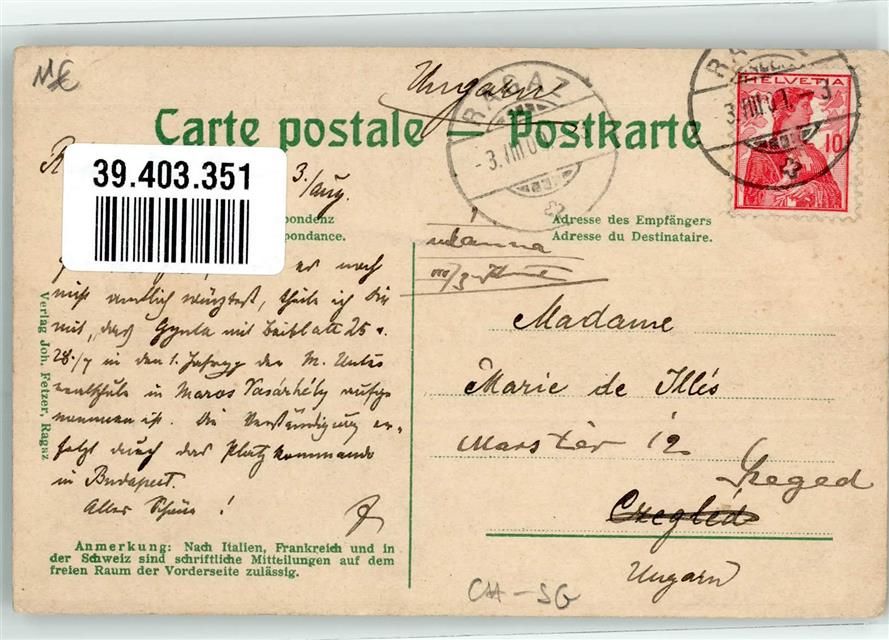 Ungarn
RAGAZ
-3.VIII.0
RA
3.VIII.0 -3
HELVETIA
10
Carte postale — Postkarte
39.403.351
3./Aug.
pondenz
pondance.
Adresse des Empfängers
Adresse du Destinataire.
er noch
nicht amtlich wüsstest, theile ich Dir
mit, dass Gyula mit Beiblatt 25 v.
28./7 in den 1. Jahrgg der M. Unter
realschule in Maros Vasárhély aufge
nommen ist. Die Verständigung er-
folgt durch das Platzkommando
in Budapest.
Alles Schöne !
Madame
Marie de Illés
Mars tér 12
Szeged
Czegléd
Ungarn
Verlag Joh. Fetzer, Ragaz
Anmerkung: Nach Italien, Frankreich und in
der Schweiz sind schriftliche Mitteilungen auf dem
freien Raum der Vorderseite zulässig.
CH-SG